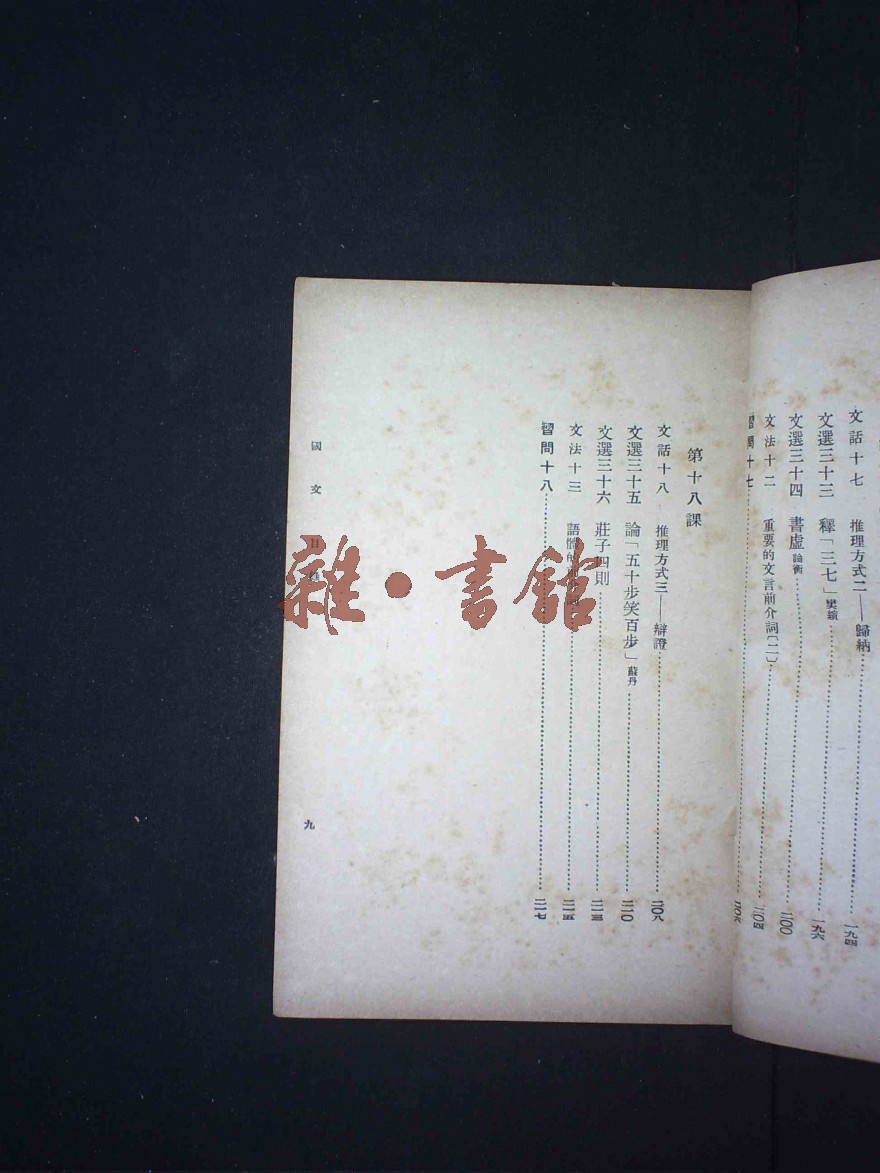 文話十七 推理方式二——歸納……一九四
文選三十三 釋「三七」樊縯……一九六
文選三十四 書虛論衡……二〇〇
文法十二 重要的文言前介詞〔二〕……二〇四
習問十七……二〇六
第十八課
文話十八 推理方式三——辯證……二〇八
文選三十五 論「五十步笑百步」蘇丹……二一〇
文選三十六 莊子四則……二一三
文法十三 語體的……二一五
習問十八……二一七
國文目
九
雜·書館